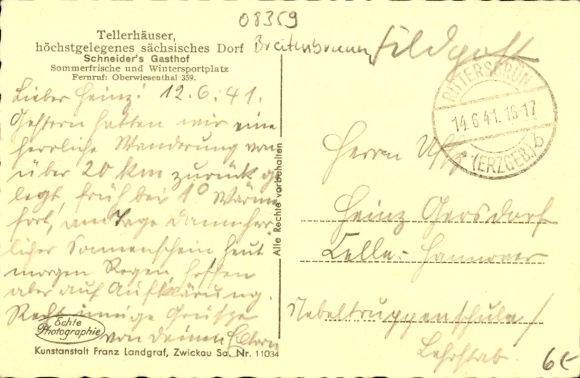 08359
Tellerhäuser,
höchstgelegenes sächsisches Dorf Breitenbrunn
Schneider's Gasthof
Sommerfrische und Wintersportplatz
Fernruf: Oberwiesenthal 359.
Feldpost
RITTERSGRÜN
14.6.41.16-17
(ERZGEB.) b
Lieber Heinz! 12.6.41.
Gestern hatten wir eine
herrliche Wanderung von
über 20 km zurück ge
legt, früh bei 1° Wärme
fort, am Tage dann herr
licher Sonnenschein heut
morgen Regen, hoffen
aber auf Aufklärung.
Recht innige Grüsse
von deinen Eltern
Echte
Photographie
Kunstanstalt Franz Landgraf, Zwickau Sa. Nr. 11034
Alle Rechte vorbehalten
Herrn
Heinz Gersdorf
Celle-Hannover
Nebeltruppenschule/
Lehrstab.
6€